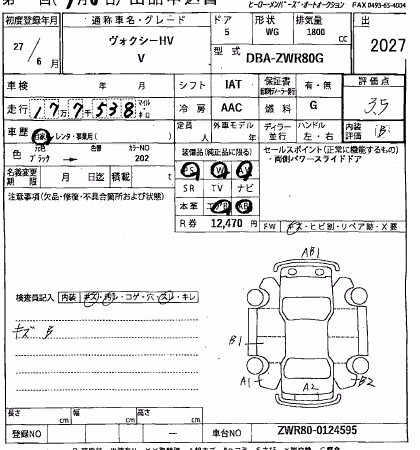 ヒーローメンバーズ・オートオークション FAX 0493-65-4004
初度登録年月 通称車名・グレード ドア 形状 排気量 出
27/6月 ヴォクシーHV V 5 WG 1800cc 2027
型式 DBA-ZWR80G
車検 年 月 シフト IAT 保証書 有・無 評価点
走行 177538 マイル キロ 冷房 AAC 燃料 G 3.5
車歴 自家 レンタ・事業用( ) 定員 人 外車モデル 年 ディーラー 並行 ハンドル 左・右 内装評価 B
色 元色 ブラック → 色替 カラーNO 202
装備品(純正品に限る) セールスポイント(正常に機能するもの)
・両側パワースライドドア
PS PW AW
名義変更期限 月 日迄 積載 t SR TV ナビ
注意事項(欠品・修復・不具合箇所および状態) 本革 エアB AB
R券 12,470 円 FW キズ・ヒビ割・リペア跡・X要
検査員記入 内装 キズ・汚レ・コゲ・穴・スレ・キレ
キズ B
AB1
B1
A1 A2 B2
長さ cm 幅 cm 高さ cm
登録NO 車台NO ZWR80-0124595